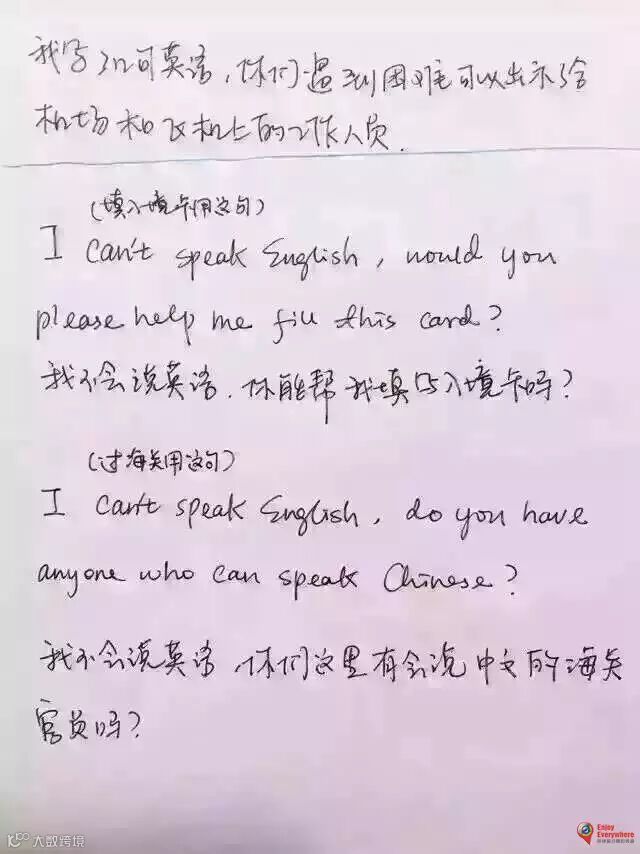 我写了几句英语,你们遇到困难可以出示给
机场和飞机上的工作人员.
(填入境卡用这句)
I can't speak English, would you
please help me fill this card?
我不会说英语,你能帮我填写入境卡吗?
(过海关用这句)
I can't speak English, do you have
anyone who can speak Chinese?
我不会说英语,你们这里有会说中文的海关
官员吗?
大数跨境
Enjoy
Everywhere